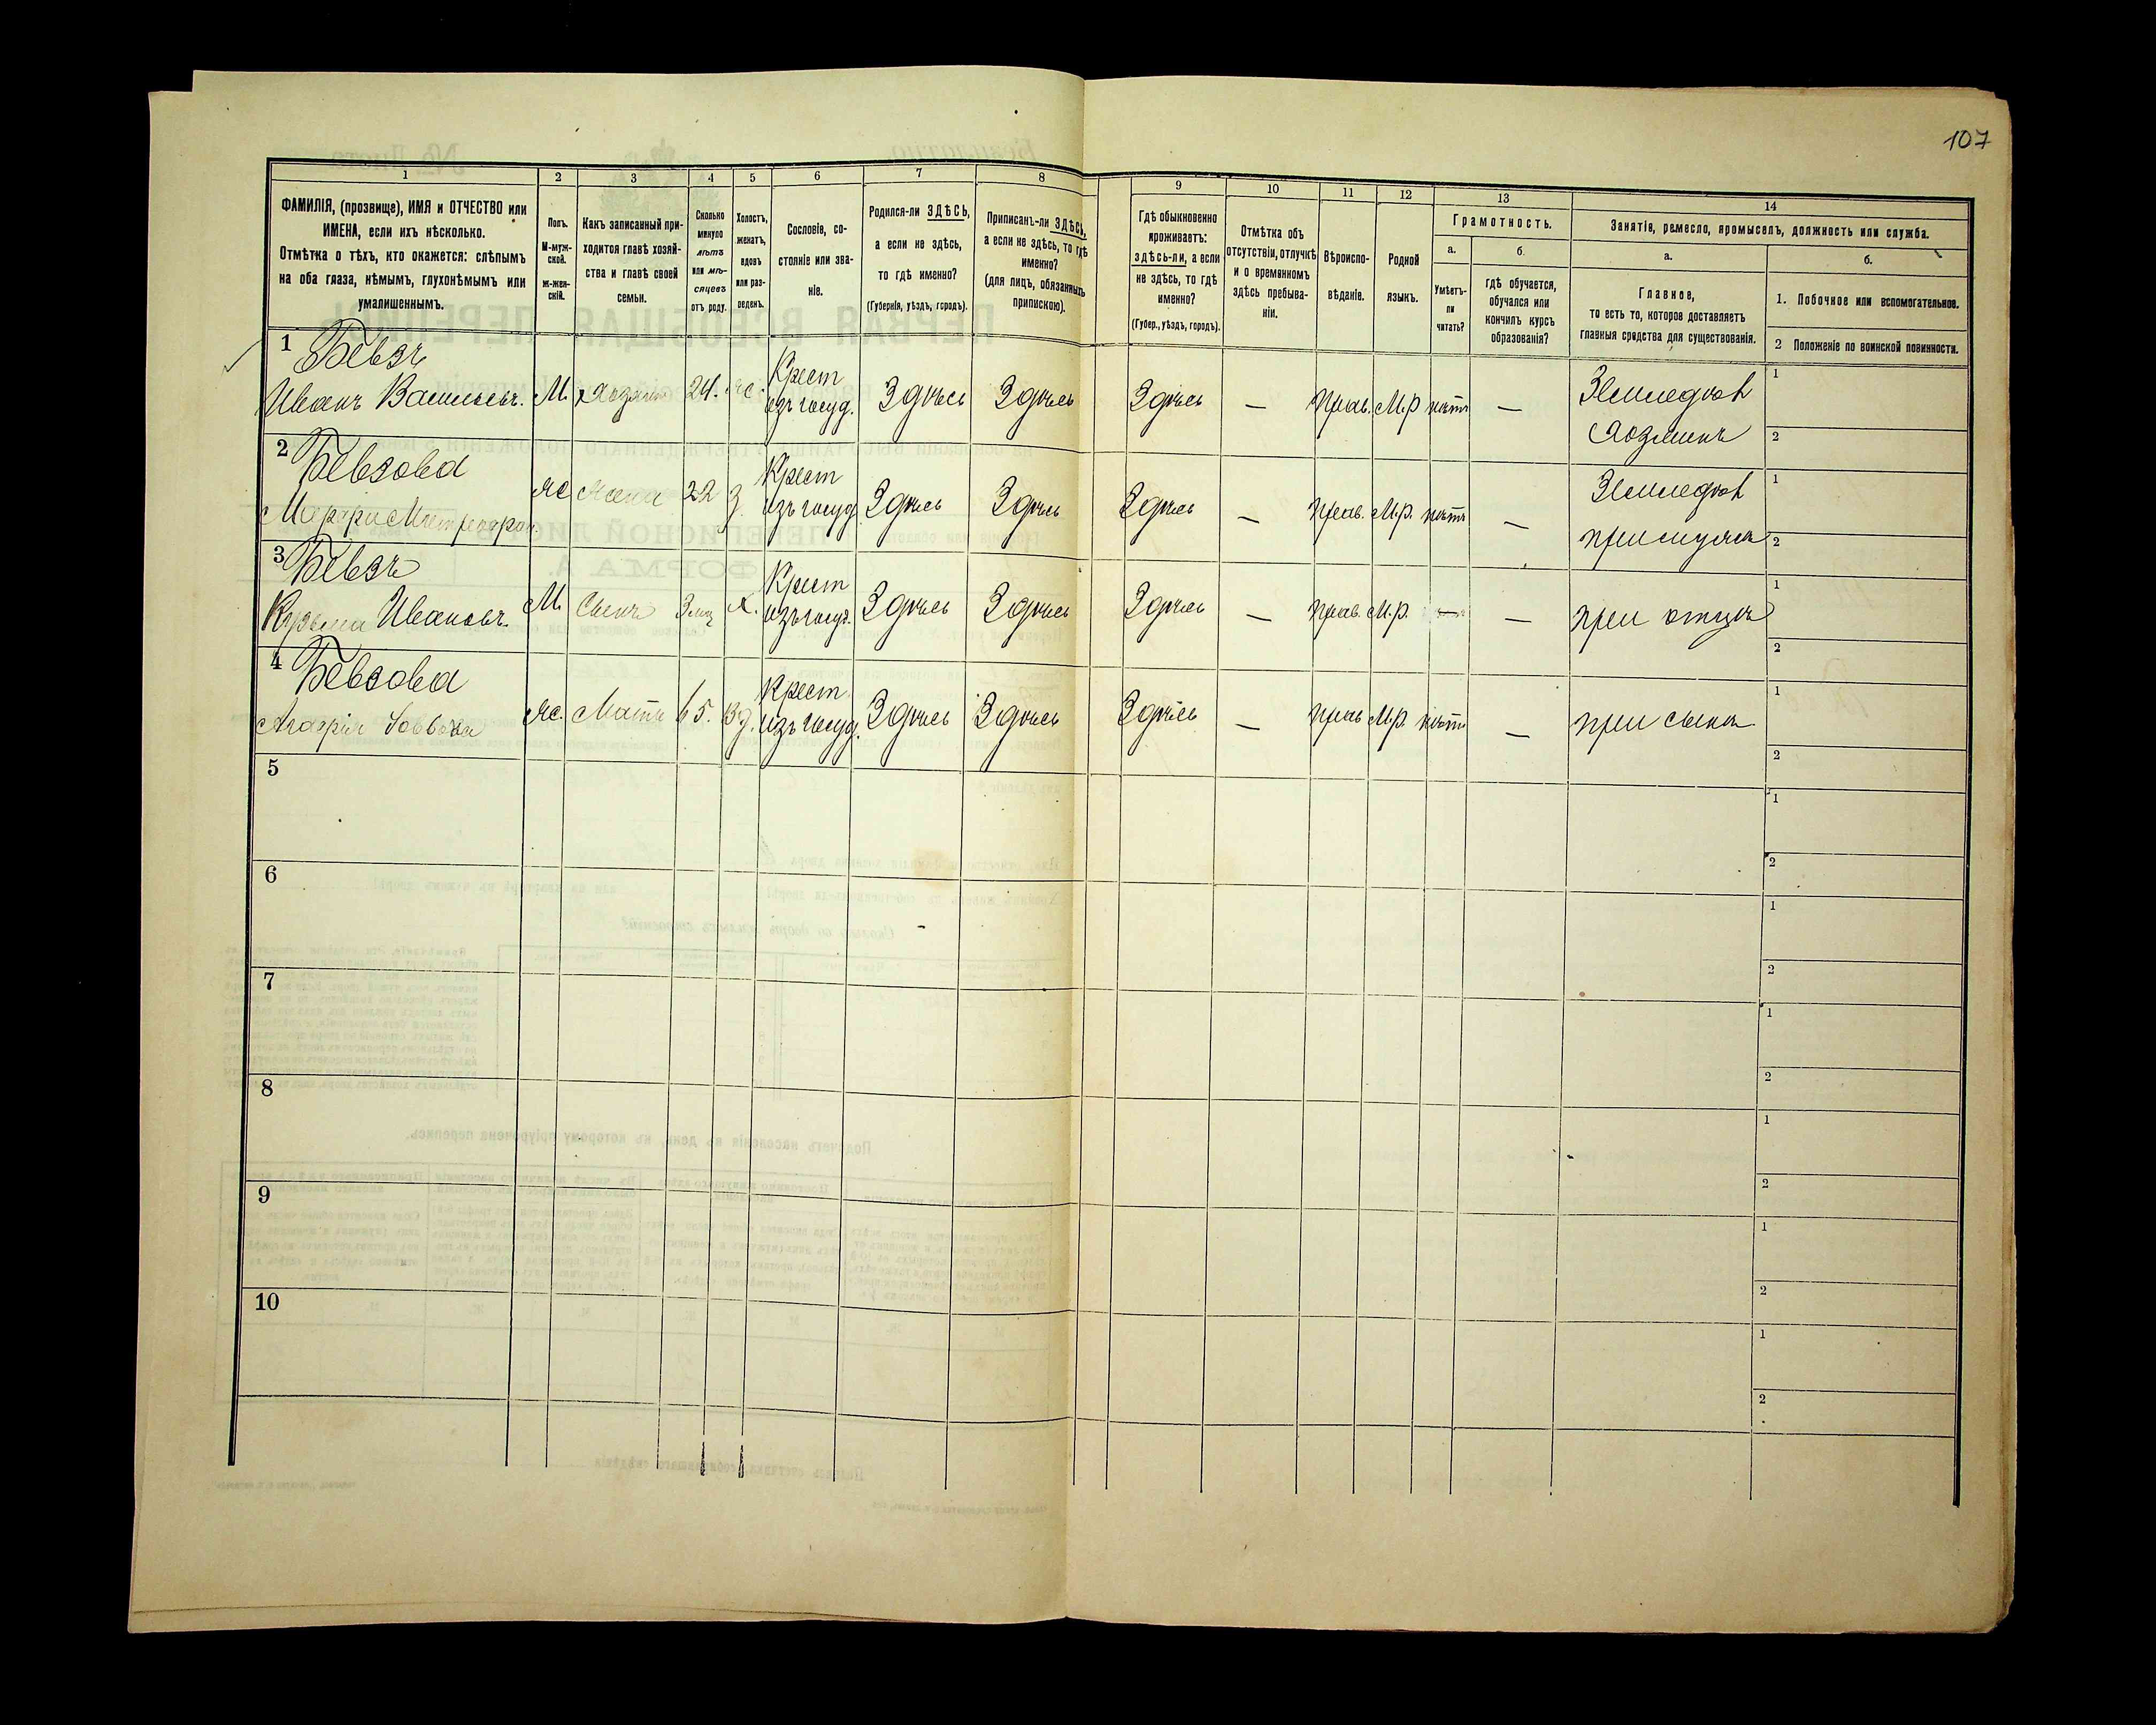 107
1
2
3
4
5
6
7
8
9
10
11
12
13
14
ФАМИЛІЯ, (прозвище), ИМЯ и ОТЧЕСТВО или
ИМЕНА, если ихъ нѣсколько.
Отмѣтка о тѣхъ, кто окажется: слѣпымъ
на оба глаза, нѣмымъ, глухонѣмымъ или
умалишеннымъ.
Полъ.
М-муж-
ской.
ж-жен-
скій.
Какъ записанный при-
ходится главѣ хозяй-
ства и главѣ своей
семьи.
Сколько
минуло
лѣтъ
или мѣ-
сяцевъ
отъ роду.
Холостъ,
женатъ,
вдовъ
или раз-
веденъ.
Сословіе, со-
стояніе или зва-
ніе.
Родился-ли ЗДѢСЬ,
а если не здѣсь,
то гдѣ именно?
(Губернія, уѣздъ, городъ).
Приписанъ-ли ЗДѢСЬ,
а если не здѣсь, то гдѣ
именно?
(для лицъ, обязанныхъ
припискою).
Гдѣ обыкновенно
проживаетъ:
здѣсь-ли, а если
не здѣсь, то гдѣ
именно?
(Губер., уѣздъ, городъ).
Отмѣтка объ
отсутствіи, отлучкѣ
и о временномъ
здѣсь пребыва-
ніи.
Вѣроиспо-
вѣданіе.
Родной
языкъ.
Грамотность.
а.
Умѣетъ-
ли
читать?
б.
гдѣ обучается,
обучался или
кончилъ курсъ
образованія?
Занятія, ремесло, промыселъ, должность или служба.
а.
Главное,
то есть то, которое доставляетъ
главныя средства для существованія.
б.
1. Побочное или вспомогательное.
2 Положеніе по воинской повинности.
1 Бевзъ
Иванъ Васильевъ. М. хозяинъ 24. ж. Крест изъ госуд. Здѣсь Здѣсь Здѣсь — прав. М.р нѣтъ — Земледѣл хозяинъ 1 2
2 Бевзова
Ж жена 22 З. Крест изъ госуд Здѣсь Здѣсь Здѣсь — прав. М.р. нѣтъ — Земледѣл при мужѣ 1 2
3 Бевзъ
Кузьма Ивановъ. М. Сынъ 3 мц х. Крест изъ госуд. Здѣсь Здѣсь Здѣсь — прав. М.р. — — при отцѣ 1 2
4 Бевзова
Агафія Ж. Мать 65. Вд. Крест изъ госуд. Здѣсь Здѣсь Здѣсь — прав М.р. нѣтъ — при сынѣ 1 2
5 1 2
6 1 2
7 1 2
8 1 2
9 1 2
10 1 2